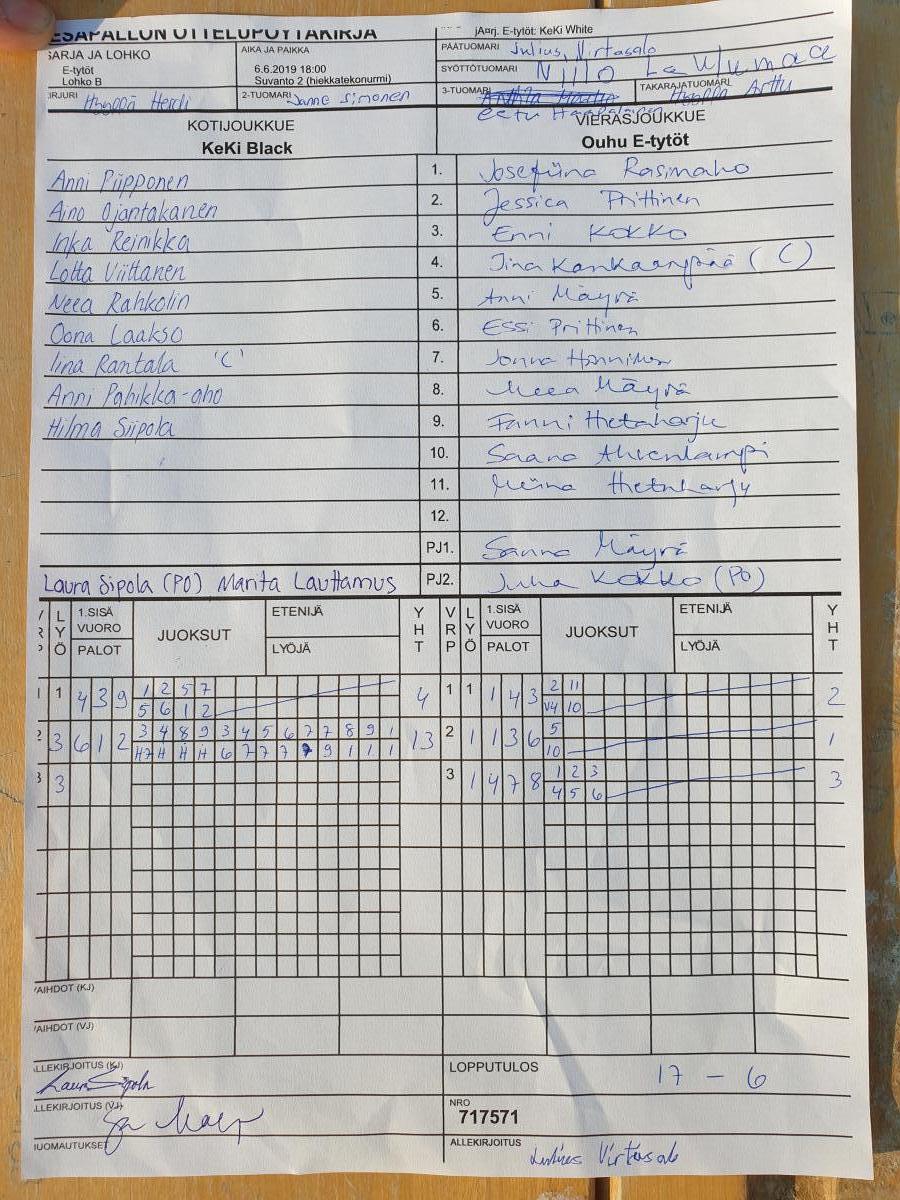 ESAPALLON OTTELUPÖYTÄKIRJA
jÄrj. E-tytöt: KeKi White
SARJA JA LOHKO
E-tytöt
Lohko B
AIKA JA PAIKKA
6.6.2019 18:00
Suvanto 2 (hiekkatekonurmi)
PÄÄTUOMARI Julius Virtasalo
SYÖTTÖTUOMARI Niilo
IRJURI Heidi
2-TUOMARI Janne Simonen
3-TUOMARI Eetu
TAKARAJATUOMARI Arttu
KOTIJOUKKUE
KeKi Black
VIERASJOUKKUE
Ouhu E-tytöt
Anni Piipponen 1. Josefiina Rasimaho
Aino Ojantakanen 2. Jessica Prittinen
Inka Reinikka 3. Enni Kokko
Lotta Viittanen 4. Iina Kankaanpää (C)
Neea Rahkolin 5. Anni Mäyrä
Oona Laakso 6. Essi Prittinen
Iina Rantala 'C' 7. Jonna
Anni Pahikka-aho 8. Neea Mäyrä
Hilma Siipola 9. Fanni Hietaharju
10. Saana Ahvenlampi
11. Hietaharju
12.
PJ1. Sanna Mäyrä
Laura Sipola (PO) Marita Lauttamus PJ2. Juha Kokko (PO)
LYÖ 1.SISÄ VUORO PALOT JUOKSUT ETENIJÄ LYÖJÄ YHT VRP LYÖ 1.SISÄ VUORO PALOT JUOKSUT ETENIJÄ LYÖJÄ YHT
1 1 4 3 9 1 2 5 7 4 1 1 1 4 3 2 11 2
5 6 1 2 V4 10
2 3 6 1 2 3 4 8 9 3 4 5 6 7 7 8 9 1 13 2 1 1 3 6 5 1
H7 H H H 6 7 7 7 9 1 1 1 10
3 3 3 1 4 7 8 1 2 3 3
4 5 6
VAIHDOT (KJ)
VAIHDOT (VJ)
ALLEKIRJOITUS (KJ) Laura Sipola
LOPPUTULOS 17 - 6
ALLEKIRJOITUS (VJ)
NRO
717571
HUOMAUTUKSET
ALLEKIRJOITUS Julius Virtasalo